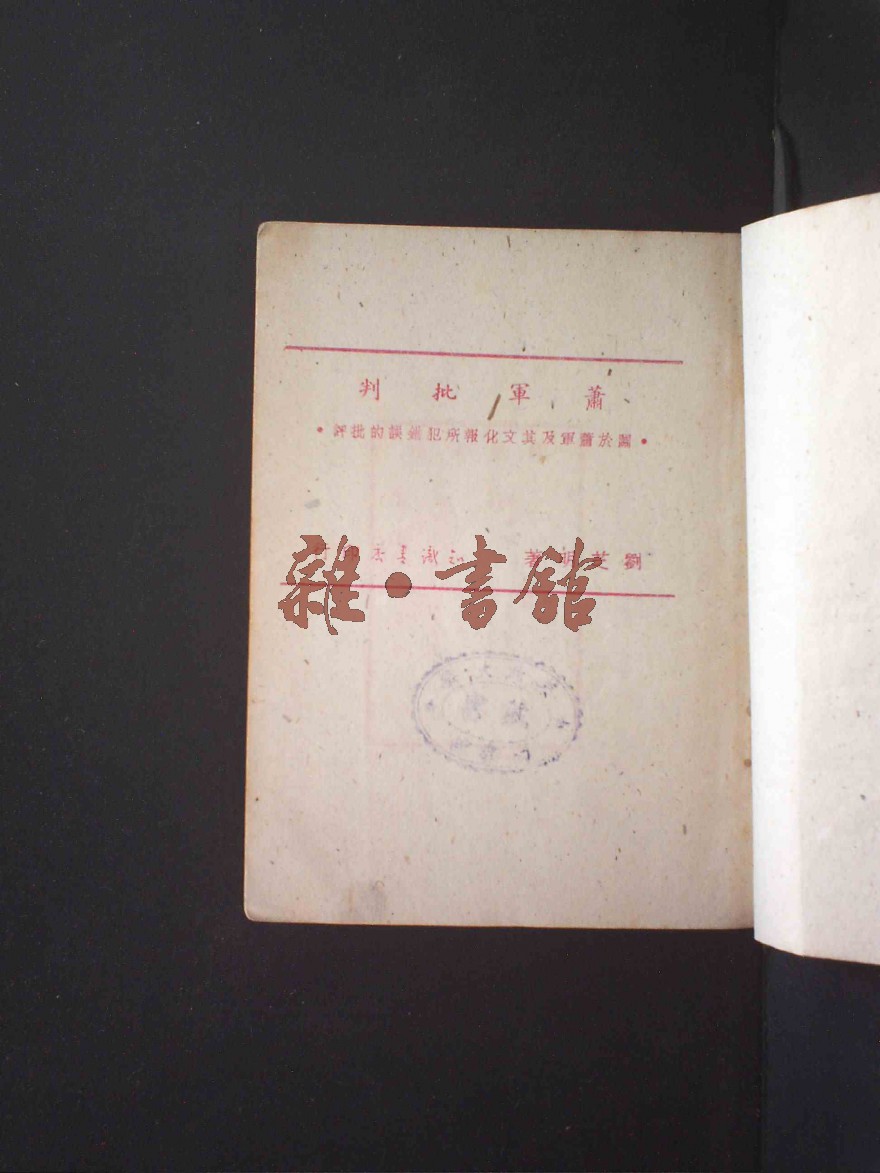 蕭軍批判
•關於蕭軍及其文化報所犯錯誤的批評•
劉芝明著
雜•書館